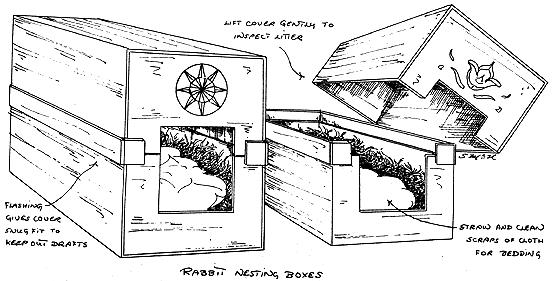 LIFT COVER GENTLY TO
INSPECT LITTER
FLASHING
GIVES COVER
SNUG FIT TO
KEEP OUT DRAFTS
STRAW AND CLEAN
SCRAPS OF CLOTH
FOR BEDDING
RABBIT NESTING BOXES